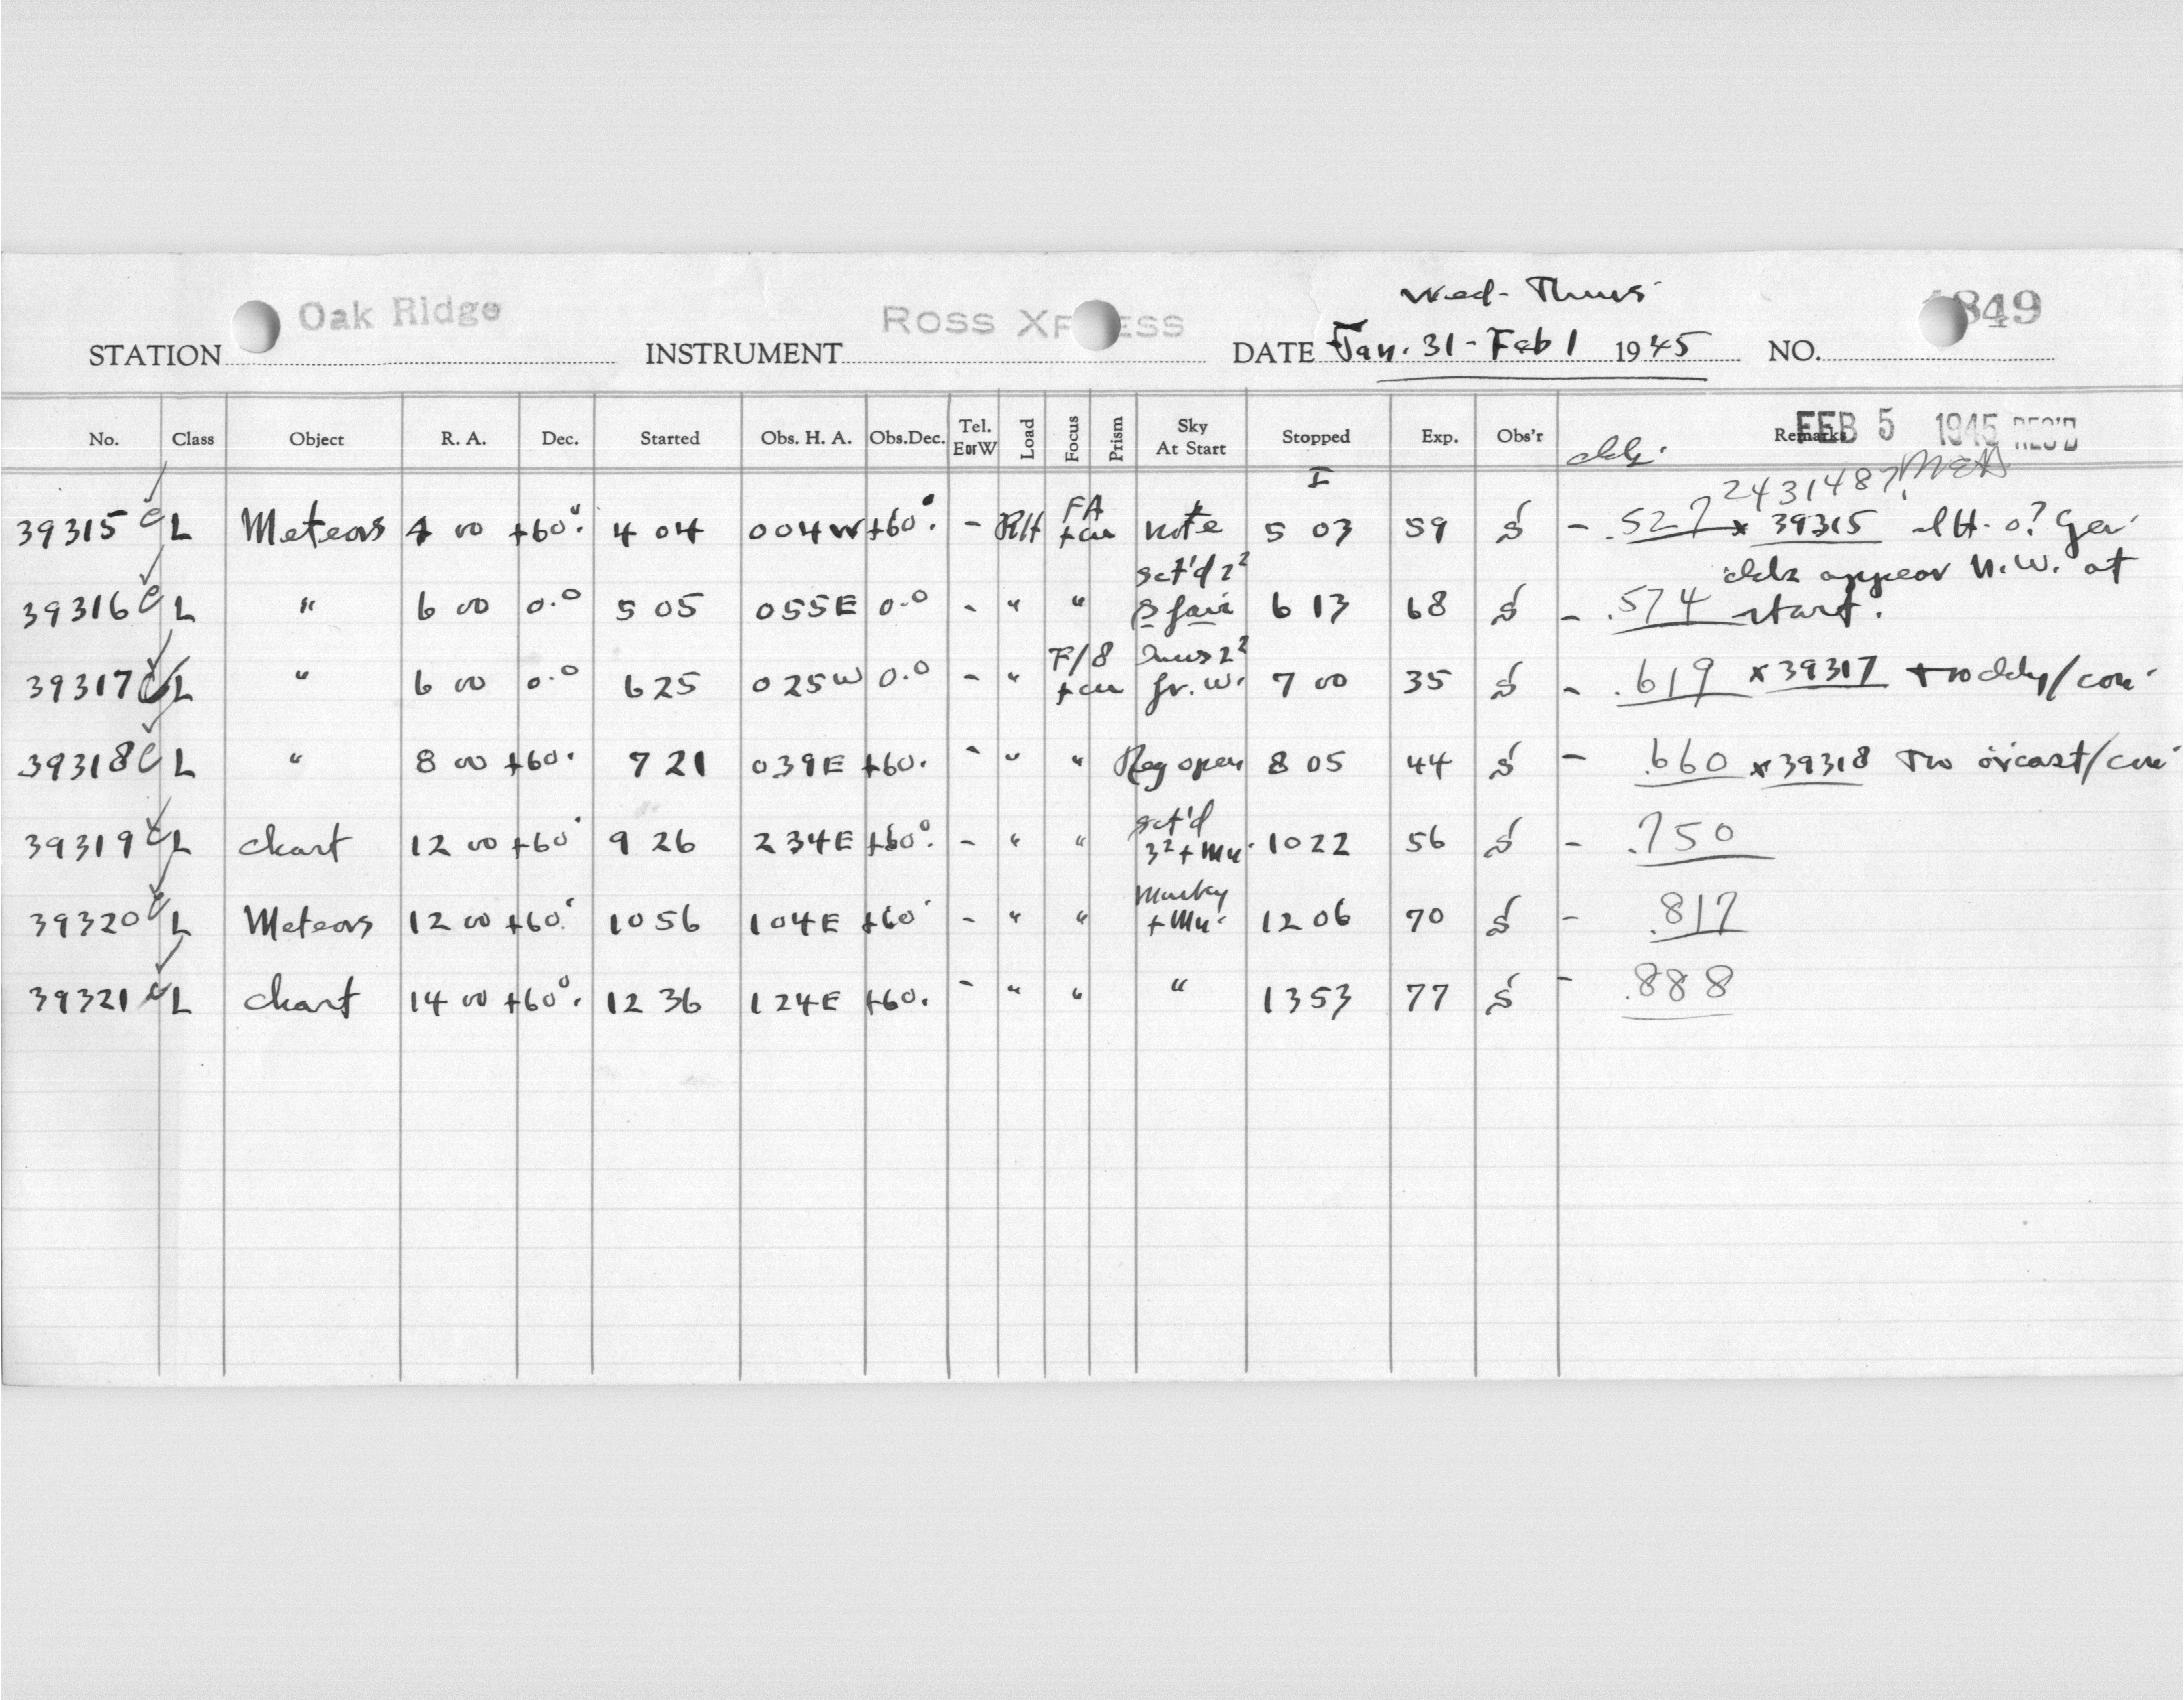 Wed - Thurs
Oak Ridge ROSS 849
STATION INSTRUMENT DATE Jan. 31 - Feb 1 1945 NO.
No. Class Object R. A. Dec. Started Obs. H. A. Obs.Dec. Tel. EorW Load Focus Prism Sky At Start Stopped Exp. Obs'r Remarks FEB 5 1945 REC'D
2431487. MEA
39315 c L Meteors 4 00 +60°. 4 04 004W +60°. - RH FA note 5 03 59 S - .527 x 39315
N.W. at
39316 c L " 6 00 0.0 5 05 055E 0.0 - " " sct'd 2² S fair 6 13 68 S - .574 start.
39317 c L " 6 00 0.0 6 25 025W 0.0 - " F/8 7 00 35 S - .619 x 39317
39318 c L " 8 00 +60. 7 21 039E +60. - " " Reg open 8 05 44 S - .660 x 39318
39319 c L chart 12 00 +60° 9 26 234E +60°. - " " sct'd 3² + Mn. 10 22 56 S - .750
39320 c L Meteors 12 00 +60°. 10 56 104E +60° - " " Murky + Mn. 12 06 70 S - .817
39321 c L chart 14 00 +60°. 12 36 124E +60. - " " " 13 53 77 S - .888